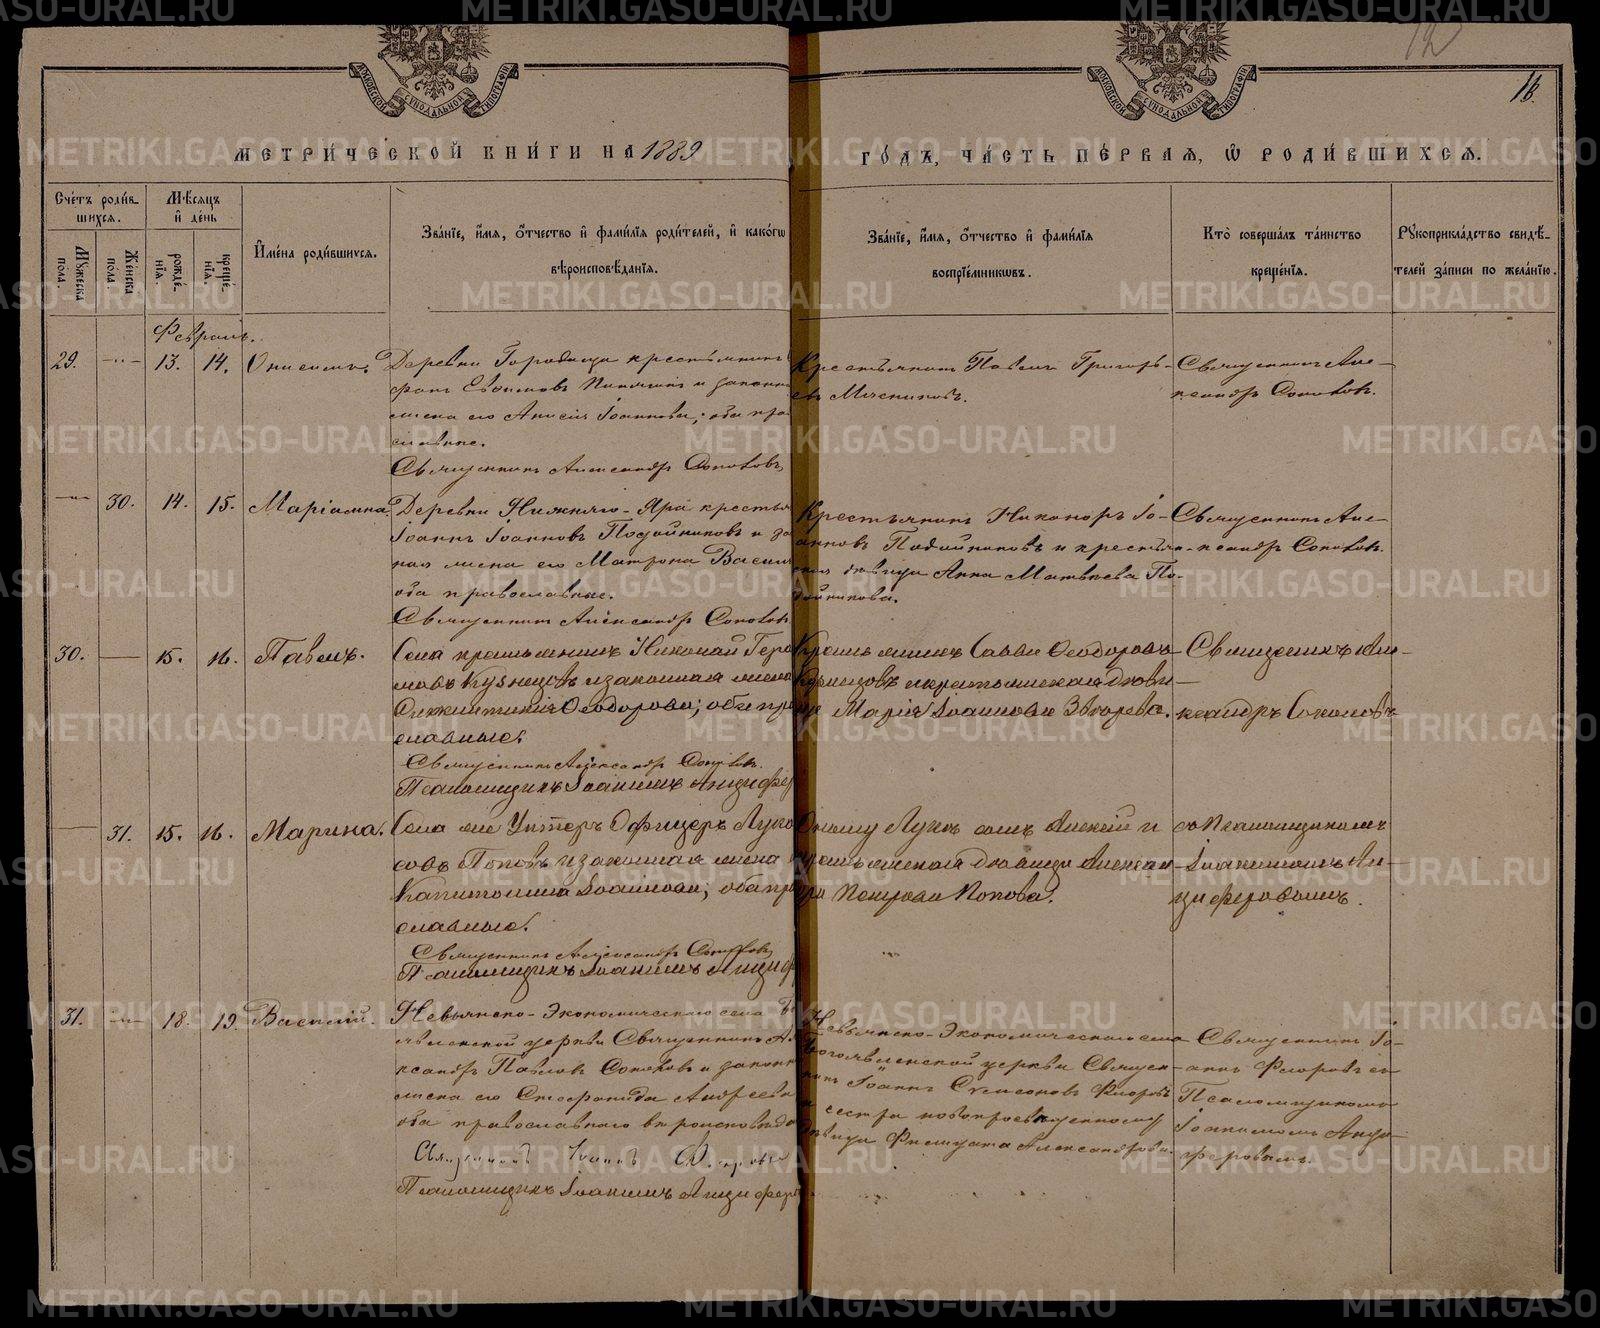 МЕТРИ́ЧЕСКОЙ КНИ́ГИ НА 1889
ГО́ДЪ, ЧА́СТЬ ПЕ́РВАѦ, Ѡ РОДИ́ВШИХСѦ.
МОСКОВСКОЙ СѴНОДАЛЬНОЙ ТИПОГРАФІИ
МОСКОВСКОЙ СѴНОДАЛЬНОЙ ТИПОГРАФІИ
12
Счетъ родившихся.
Мѣсяцъ и день
Мужеска пола.
Женска пола.
рожденія.
крещенія.
Имена родившихся.
Званіе, имя, отчество и фамилія родителей, и какогѡ
вѣроисповѣданія.
Званіе, имя, отчество и фамилія
воспріемниковъ.
Кто совершалъ таинство
крещенія.
Рукоприкладство свидѣ-
телей записи по желанію.
Февраль.
29. 13. 14. Онисимъ.
Деревни Городища крестьянинъ
Евѳимовъ и законн
жена его Анисія Іоаннова; оба пра
славные.
Священникъ Александръ Соколовъ
Крестьянинъ Павелъ Григорь-
евъ
Священникъ Але-
ксандръ Соколовъ.
30. 14. 15. Маріамна.
Деревни Нижняго-Яра крестья
Іоаннъ Іоанновъ Подойниковъ и за
ная жена его Матрона Васил
оба православные.
Священникъ Александръ Соколовъ
Крестьянинъ Никаноръ Іо-
анновъ Подойниковъ и крестьян-
ская дѣвица Анна Матвѣева По-
дойникова.
Священникъ Але-
ксандръ Соколовъ.
30. 15. 16. Павелъ.
Села крестьянинъ Николай Гера
мовъ Кузнецовъ и законная жена
Ѳеодорова; оба пра
славные.
Священникъ Александръ Соколовъ.
Псаломщикъ Іоакимъ Анциферовъ
Крестьянинъ Савва Ѳеодоровъ
Кузнецовъ и крестьянская дѣви-
ца Марія Іоаннова Звѣрева.
Священникъ Але-
ксандръ Соколовъ
31. 15. 16. Марина.
Села Унтеръ Офицеръ Лука
Поповъ и законная жена
Капитолина Іоаннова; оба пра
славные.
Священникъ Александръ Соколовъ
Псаломщикъ Іоакимъ Анциф
Луки сынъ Алексій и
крестьянская дѣвица Алексан-
дра Петрова Попова.
съ Псаломщикомъ
Іоакимомъ Ан-
циферовымъ.
31. 18. 19. Василій.
Невьянско-Экономическаго села Бо
явленской церкви Священникъ Ал
ксандръ Павловъ Соколовъ и законн
жена его Стефанида Андреева
оба православнаго вѣроисповѣда
Священникъ Іоаннъ Флоровъ
Псаломщикъ Іоакимъ Анцифер
Невьянско-Экономическаго села
Богоявленской церкви Священ-
никъ Іоаннъ Симеоновъ Флоровъ
и сестра новопросвѣщенному
дѣвица Филицата Александрова.
Священникъ Іо-
аннъ Флоровъ съ
Псаломщикомъ
Іоакимомъ Анци-
феровымъ.
METRIKI.GASO-URAL.RU